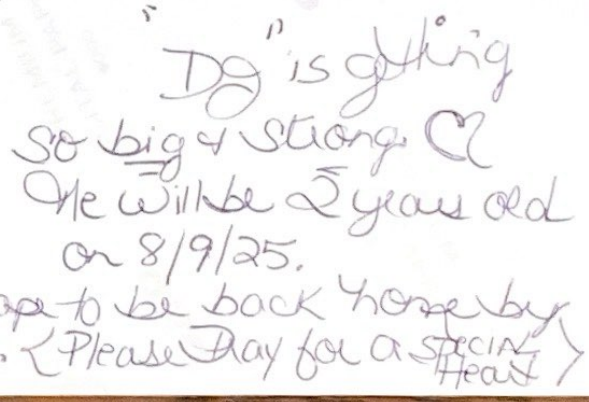 "DJ" is getting
so big & strong. ♡
He will be 2 years old
on 8/9/25.
ope to be back home by
. <Please Pray for a SPECIAL
Heart>